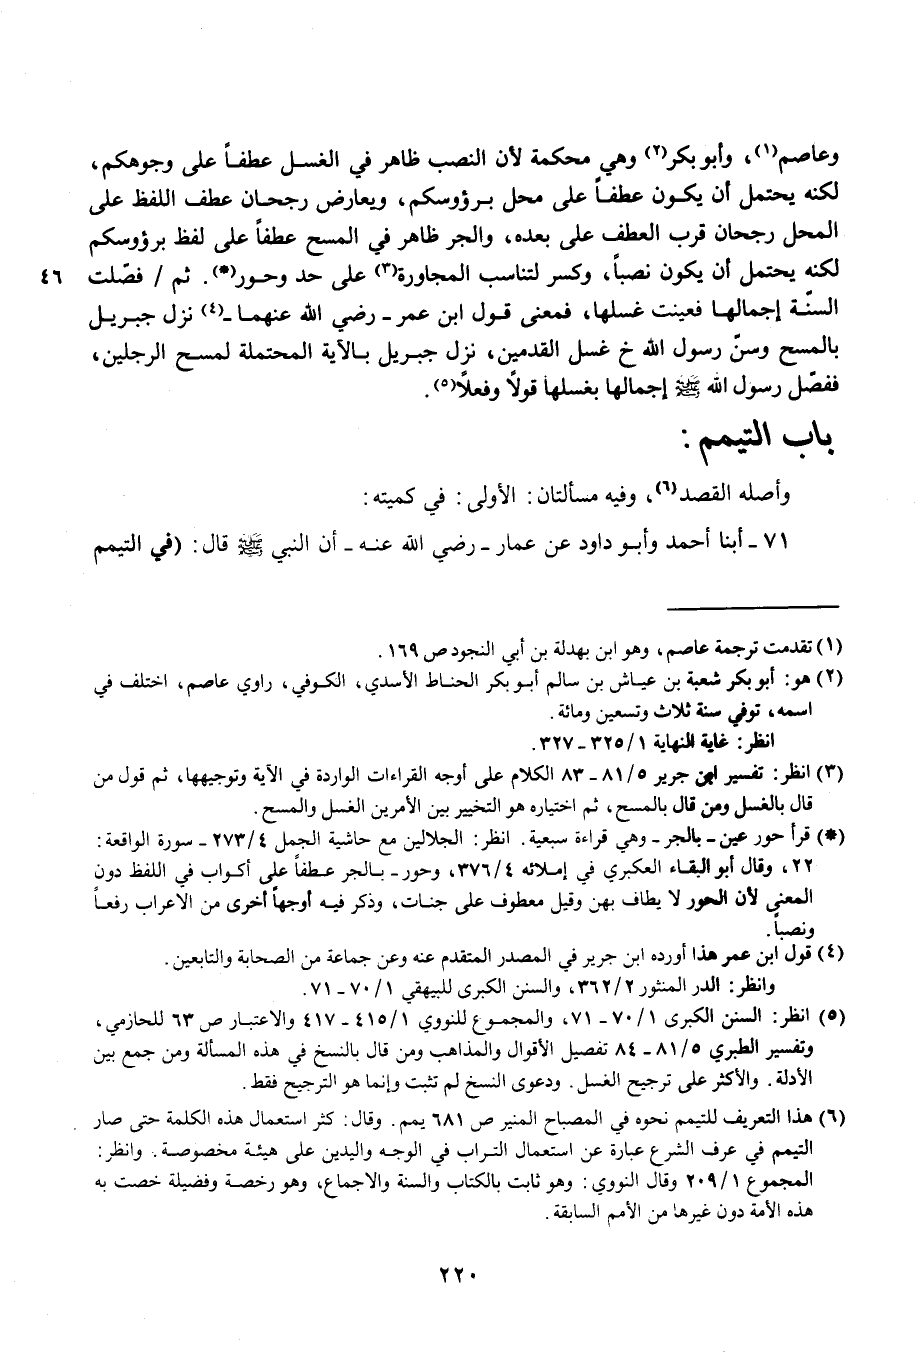 وعاصم(١)، وأبو بكر(٢) وهي محكمة لأن النصب ظاهر في الغسل عطفاً على وجوهكم،
لكنه يحتمل أن يكون عطفاً على محل برؤوسكم، ويعارض رجحان عطف اللفظ على
المحل رجحان قرب العطف على بعده، والجر ظاهر في المسح عطفاً على لفظ برؤوسكم
لكنه يحتمل أن يكون نصباً، وكسر لتناسب المجاورة(٣) على حد وحور(*). ثم / فصّلت ٤٦
السنّة إجمالها فعينت غسلها، فمعنى قول ابن عمر ـ رضي الله عنهما ـ(٤) نزل جبريل
بالمسح وسنّ رسول الله خ غسل القدمين، نزل جبريل بالآية المحتملة لمسح الرجلين،
ففصّل رسول الله ﷺ إجمالها بغسلها قولاً وفعلاً(٥).
باب التيمم :
وأصله القصد(٦)، وفيه مسألتان: الأولى: في كميته:
٧١ ـ أبنا أحمد وأبو داود عن عمار ـ رضي الله عنه ـ أن النبي ﷺ قال: (في التيمم
(١) تقدمت ترجمة عاصم، وهو ابن بهدلة بن أبي النجود ص ١٦٩.
(٢) هو: أبو بكر شعبة بن عياش بن سالم أبو بكر الحناط الأسدي، الكوفي، راوي عاصم، اختلف في
اسمه، توفي سنة ثلاث وتسعين ومائة.
انظر: غاية النهاية ١/ ٣٢٥ ـ ٣٢٧.
(٣) انظر: تفسير ابن جرير ٥/ ٨١ ـ ٨٣ الكلام على أوجه القراءات الواردة في الآية وتوجيهها، ثم قول من
قال بالغسل ومن قال بالمسح، ثم اختياره هو التخيير بين الأمرين الغسل والمسح.
(*) قرأ حور عين ـ بالجر ـ وهي قراءة سبعية. انظر: الجلالين مع حاشية الجمل ٤/ ٢٧٣ ـ سورة الواقعة:
٢٢، وقال أبو البقاء العكبري في إملائه ٤/ ٣٧٦، وحور ـ بالجر عطفاً على أكواب في اللفظ دون
المعنى لأن الحور لا يطاف بهن وقيل معطوف على جنات، وذكر فيه أوجهاً أخرى من الاعراب رفعاً
ونصباً.
(٤) قول ابن عمر هذا أورده ابن جرير في المصدر المتقدم عنه وعن جماعة من الصحابة والتابعين.
وانظر: الدر المنثور ٢/ ٣٦٢، والسنن الكبرى للبيهقي ١/ ٧٠ ـ ٧١.
(٥) انظر: السنن الكبرى ١/ ٧٠ ـ ٧١، والمجموع للنووي ١/ ٤١٥ ـ ٤١٧ والاعتبار ص ٦٣ للحازمي،
وتفسير الطبري ٥/ ٨١ ـ ٨٤ تفصيل الأقوال والمذاهب ومن قال بالنسخ في هذه المسألة ومن جمع بين
الأدلة. والأكثر على ترجيح الغسل. ودعوى النسخ لم تثبت وإنما هو الترجيح فقط.
(٦) هذا التعريف للتيمم نحوه في المصباح المنير ص ٦٨١ يمم. وقال: كثر استعمال هذه الكلمة حتى صار
التيمم في عرف الشرع عبارة عن استعمال التراب في الوجه واليدين على هيئة مخصوصة. وانظر:
المجموع ١/ ٢٠٩ وقال النووي: وهو ثابت بالكتاب والسنة والاجماع، وهو رخصة وفضيلة خصت به
هذه الأمة دون غيرها من الأمم السابقة.
٢٢٠